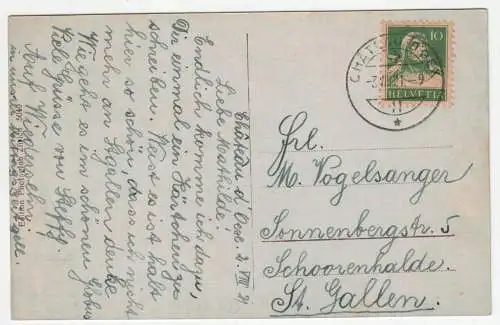 Château d. Oex. 2. VIII 21.
Liebe Mathilde!
Endlich komme ich dazu,
Dir einmal ein Kärtchen zu
schreiben. Fast es ist halt
hier so schön, dass ich nicht
mehr an St. Gallen denke
Wie geht es im schönen
Viele Grüsse von
Auf Wiedersehn.
in
CHATE
HELVETIA
10
Frl.
M. Vogelsanger
Sonnenbergstr. 5
Schoorenhalde.
St. Gallen.